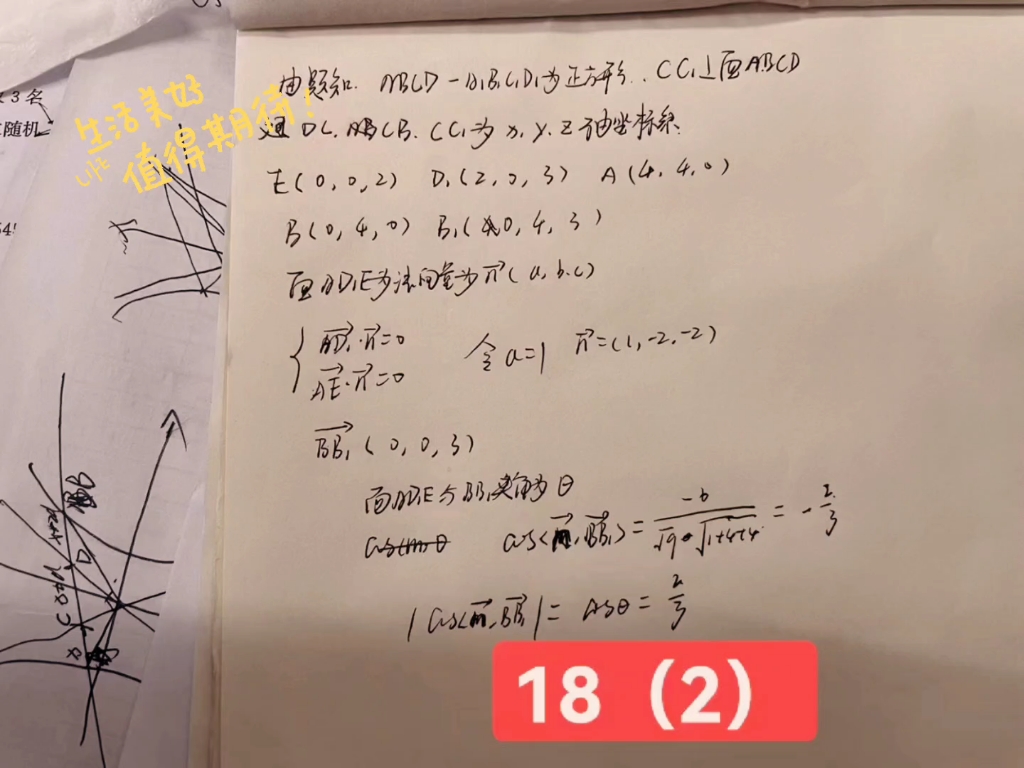 3名
随机
生活美好
life 值得其期待！
54!
由题知. ABCD-A₁B₁C₁D₁为正方形. CC₁⊥面ABCD
DC. CB. CC₁为 x. y. z 轴坐标系
E(0, 0, 2) D₁(2, 0, 3) A(4, 4, 0)
B(0, 4, 0) B₁(0, 4, 3)
面AD₁E为法向量为n⃗(a, b. c)
AD₁⃗·n⃗=0
AE⃗·n⃗=0
令a=1 n⃗=(1, -2, -2)
BB₁⃗ (0, 0, 3)
面AD₁E与BB₁夹角为θ
cos<n⃗, BB₁⃗> = -6/(√9·√1+4+4) = -2/3
|cos<n⃗, BB₁⃗>| = cosθ = 2/3
18（2）